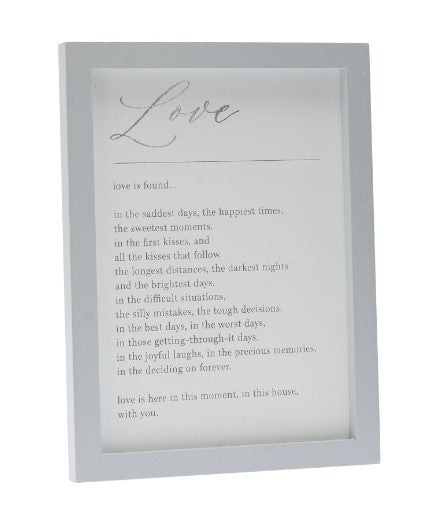 Love
love is found...
in the saddest days, the happiest times,
the sweetest moments.
in the first kisses, and
all the kisses that follow.
the longest distances, the darkest nights
and the brightest days.
in the difficult situations,
the silly mistakes, the tough decisions.
in the best days, in the worst days,
in those getting-through-it days.
in the joyful laughs, in the precious memories,
in the deciding on forever.
love is here in this moment, in this house,
with you.